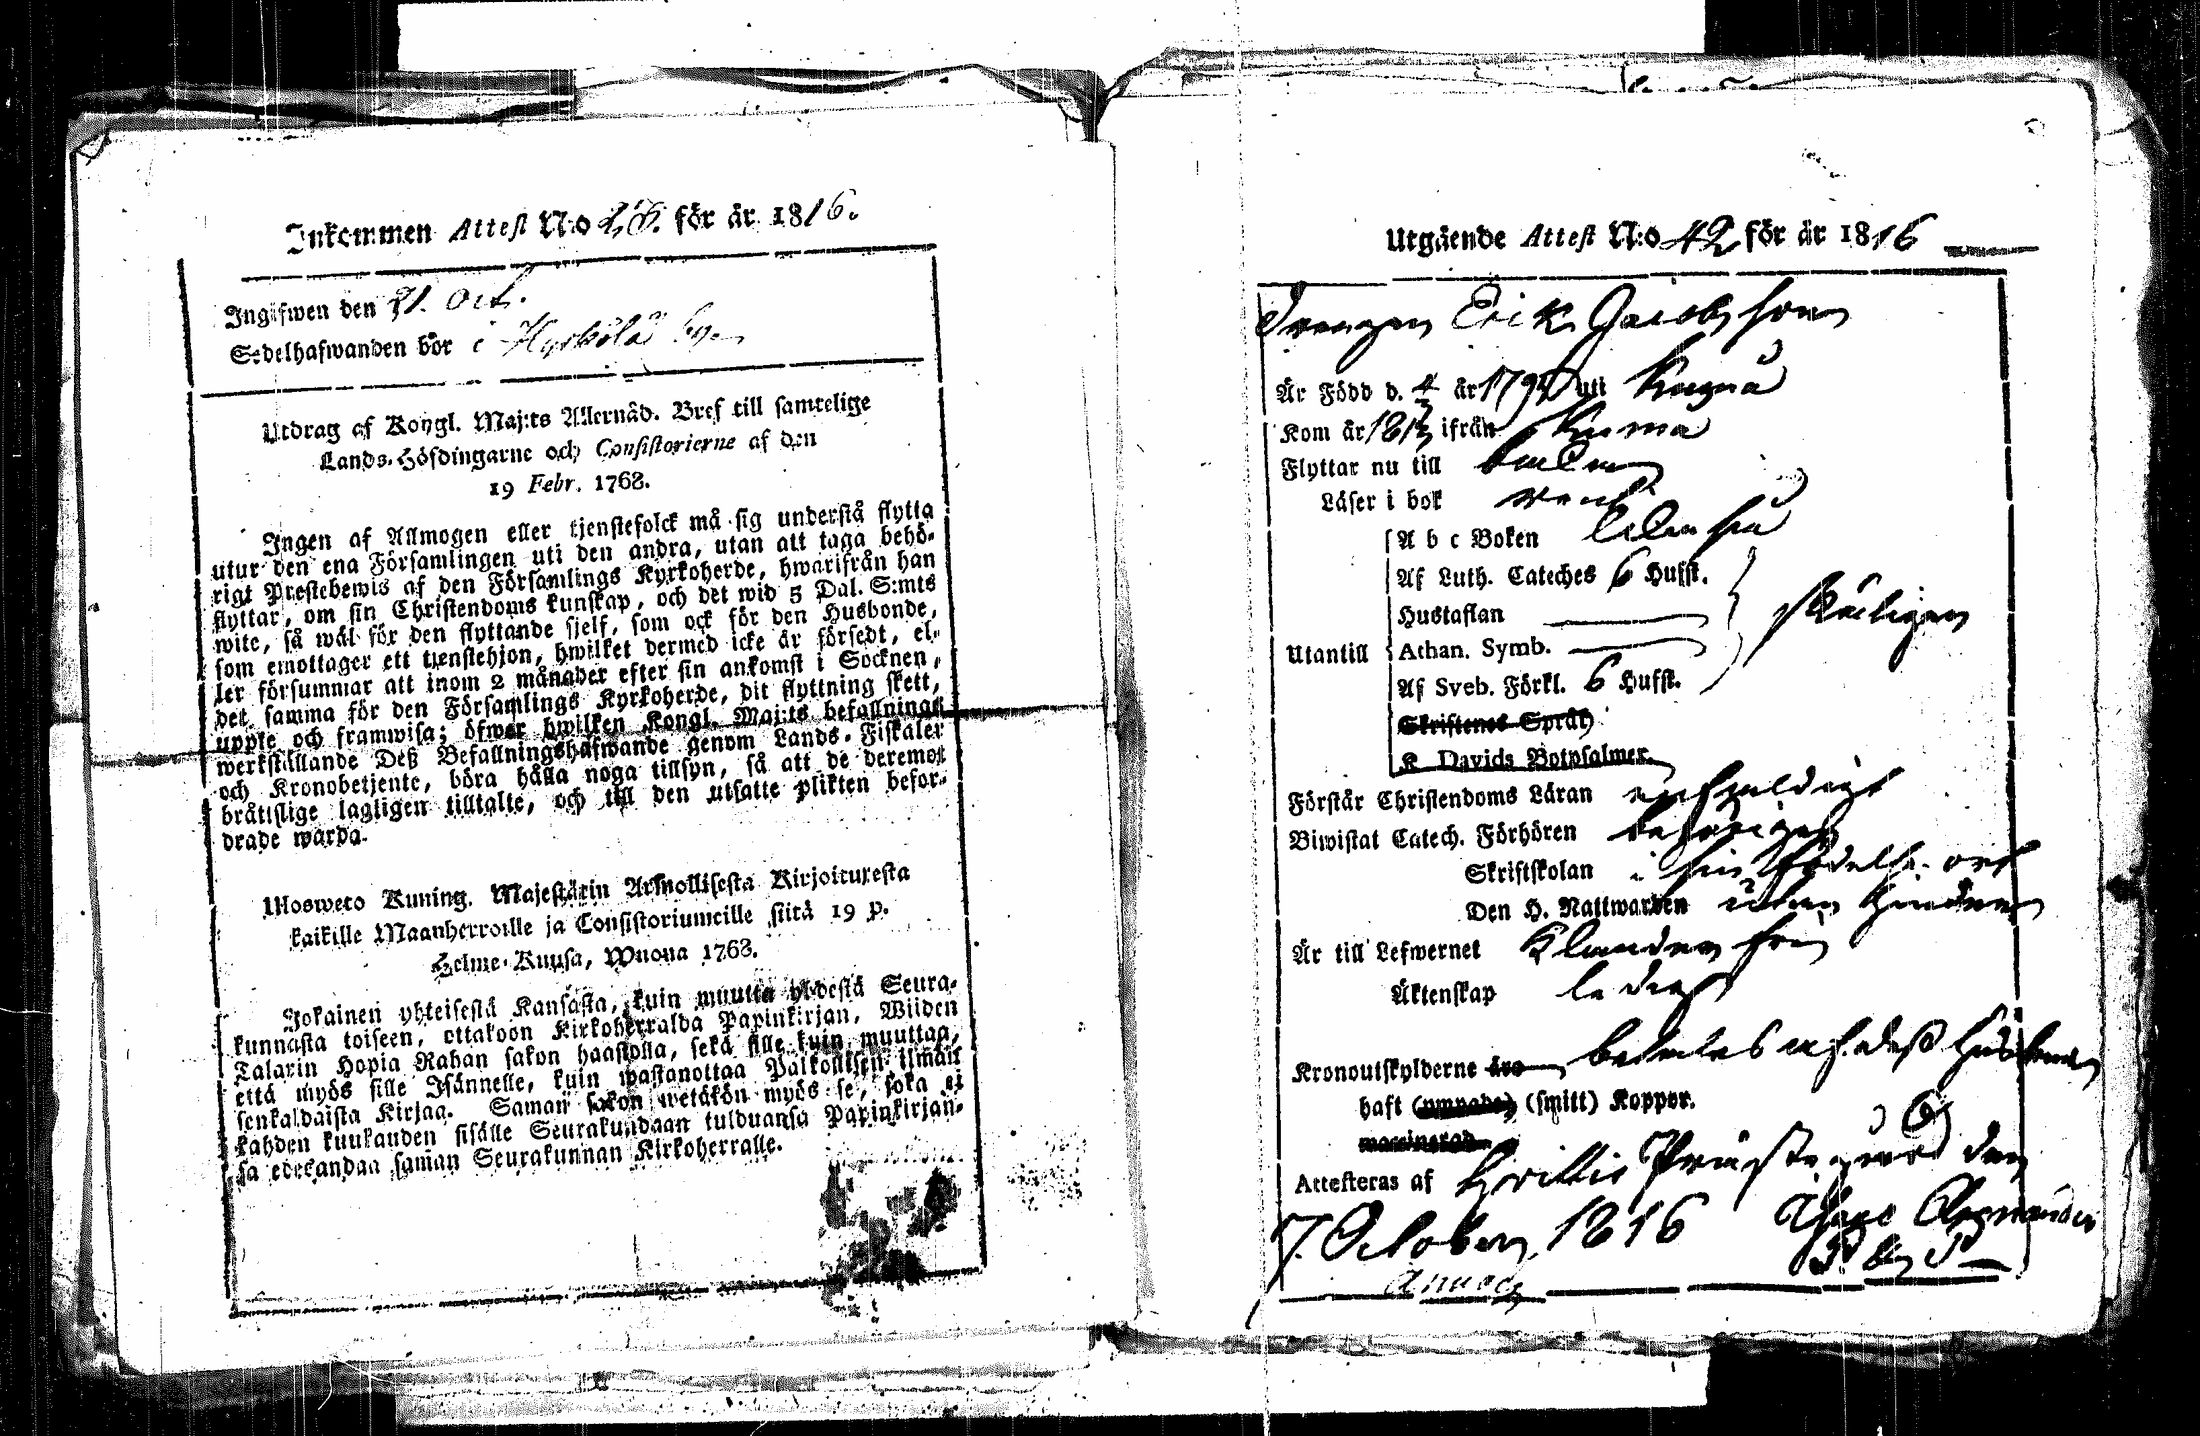 Inkommen Attest N:o för år 1816.
Ingifwen den 21. Oct.
Sedelhafwanden bor i by
Utdrag af Kongl. Maj:ts Allernåd. Bref till samtelige
Lands-Höfdingarne och Consistorierne af den
19 Febr. 1768.
Ingen af Allmogen eller tjenstefolck må sig understå flytta
utur den ena Församlingen uti den andra, utan att taga behö-
rigt Prestebewis af den Församlings Kyrkoherde, hwarifrån han
flyttar, om sin Christendoms kunskap, och det wid 5 Dal. S:mts
wite, så wäl för den flyttande sjelf, som ock för den Husbonde,
som emottager ett tjenstehjon, hwilket dermed icke är försedt, el-
ler försummar att inom 2 månader efter sin ankomst i Socknen,
det samma för den Församlings Kyrkoherde, dit flyttning skett,
uppte och framwisa; öfwer hwilken Kongl. Maj:ts befallnings
werkställande Deß Befallningshafwande genom Lands-Fiskaler
och Kronobetjente, böra hålla noga tillsyn, så att de deremot
bråtslige lagligen tilltalte, och till den utsatte plikten befor-
drade warda.
Ulosweto Kuning. Majestätin Armollisesta Kirjoituxesta
kaikille Maanherroille ja Consistoriumeille siitä 19 p.
Helme-Kuusa, Wuona 1768.
Jokainen yhteisestä Kansasta, kuin muutta yhdestä Seura-
kunnasta toiseen, ottakoon Kirkoherralda Papinkirjan, Wiiden
Talarin Hopia Rahan sakon haastolla, sekä sille kuin muuttaa,
että myös sille Isännelle, kuin wastanottaa Palkollisen ilman
senkaldaista Kirjaa. Saman sakon wetäkön myös se, joka ei
kahden kuukauden sisälle Seurakundaan tulduansa Papinkirjan-
sa edeskandaa saman Seurakunnan Kirkoherralle.
Utgående Attest N:o 42 för år 1816
Drengen Erik Jacobsson
Är Född d. år 179 uti
Kom år 181 ifrån Kuma
Flyttar nu till
Läser i bok
A b c Boken
Af Luth. Cateches 6 Hufst.
Hustaflan
skäligen
Utantill Athan. Symb.
Af Sveb. Förkl. 6 Hufst.
Skriftenes Språk
K Davids Botpsalmer.
Förstår Christendoms Läran enfaldigt
Biwistat Catech. Förhören behörigen
Skriftskolan i sin födelse ort
Den H. Nattwarden utan hinder
Är till Lefwernet Klander fri
Äktenskap ledig
Kronoutskylderne äro betalas af deß Husbonde
haft (ympade) (smitt) Koppor.
waccinerad
Attesteras af Prästegård den
7. October 1816